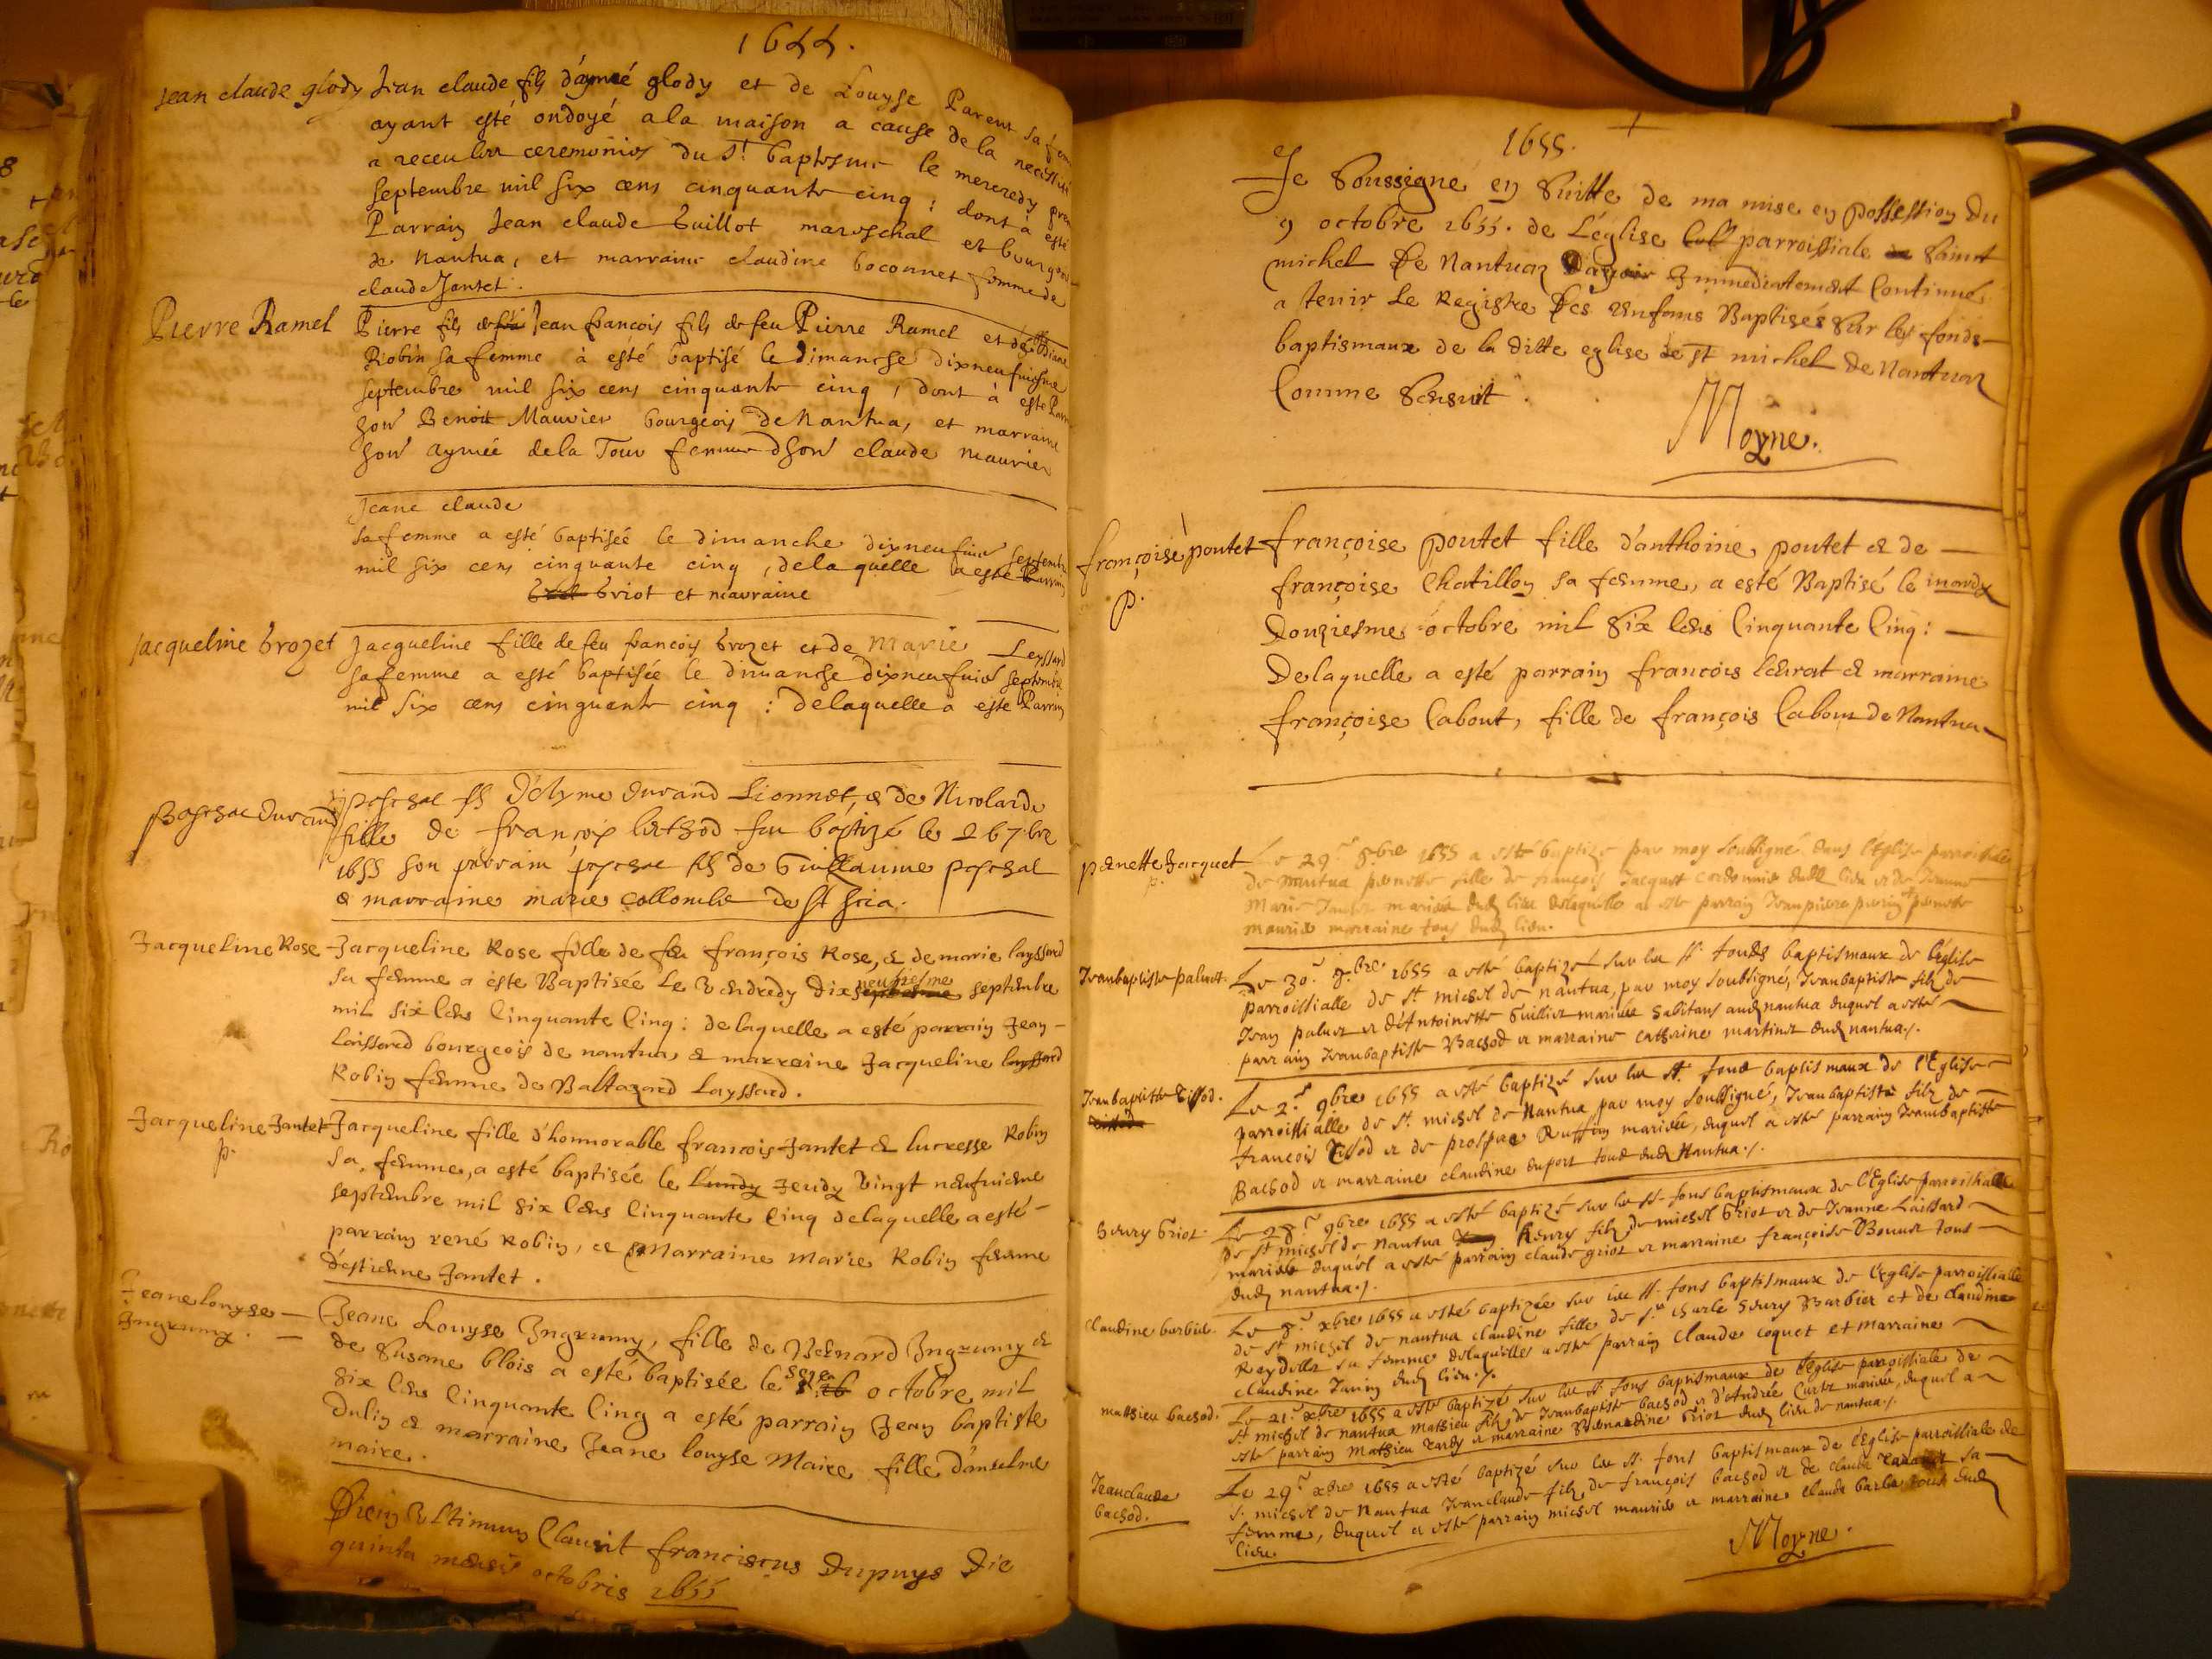 1655.
Jean claude glody
Jean claude fils d'aymeé glody et de Louyse Parent sa
ayant esté ondoyé a la maison a cause de la necessité
a receu les ceremonies du St baptesme le mercredy
septembre mil six cens cinquante cinq ; dont à esté
Parrain Jean claude Guillot mareschal et bourgeois
de Nantua, et marraine claudine boconnet femme de
claude Jantet.
Pierre Ramel
Pierre fils de feu Jean francois fils de feu Pierre Ramel et de Diane
Robin sa femme à esté baptisé le dimanche dixneufuiesme
septembre mil six cens cinquante cinq, dont à esté
hon Benoit Mauvier bourgeois de Nantua, et marraine
hon aymeé dela Tour femme d'hon claude Mauvier
Jeane claude
sa femme a esté baptiseé le dimanche dixneufuie septembre
mil six cens cinquante cinq, delaquelle a esté Parrain
Griot et marraine
Jacqueline Grozet
Jacqueline fille de feu francois Grozet et de Marie Leyssard
sa femme a esté baptiseé le dimanche dixneufuie septembre
mil six cens cinquante cinq : delaquelle a esté Parrain
Paschal durand
paschal fils d'Etyme durand Lionnet, & de Nicolarde
fille de françois berthod fu baptizé le 26 7.bre
1655 son parrain paschal fils de Guillaume paschal
& marraine marie collombe de st
Jacqueline Rose
Jacqueline Rose fille de feu françois Rose, & de marie layssard
sa femme a esté Baptisée le Vendredy dix neufiesme septembre
mil six cens Cinquante Cinq : de laquelle a esté parrain Jean
Laissard bourgeois de nantua & marraine Jacqueline layssard
Robin femme de Baltazard Layssard.
Jacqueline Jantet
p.
Jacqueline fille d'honnorable francois Jantet & lucresse Robin
sa femme, a esté baptisée le Lundy Jeudy Vingt neufuieme
septembre mil six cens Cinquante Cinq delaquelle a esté
parrain rené Robin, & Marraine Marie Robin femme
d'estienne Jantet.
Jeane louyse
Jngrumy.
Jeane Louyse Jngrumy, fille de Bernard Jngrumy &
de Susane blois a esté baptisée le octobre mil
six cens Cinquante Cinq a esté parrain Jean baptiste
Dulin & marraine Jeane louyse Maire fille d'anselme
maire.
Diem Ultimum Clausit franciscus Dupuys Die
quinta mensis octobris 1655
1655.
Je Soussigné en Suitte de ma mise en possession du
9 octobre 1655. de L'église parroissiale de Saint
michel De Nantua Immediatement Continué
a tenir Le Registre Des Enfans Baptisés Sur les fonds
baptismaux de la ditte eglise de st michel de Nantua
Comme Sensuit.
Moyne.
françoise poutet
p.
françoise poutet fille d'anthoine poutet & de
françoise Chatillon sa femme, a esté Baptisé le mardy
Douziesme octobre mil Six Cens Cinquante Cinq :
Delaquelle a esté parrain francois & marraine
françoise Cabout, fille de françois Cabout de Nantua
pernette Jacquet
p.
Le 29e 8bre 1655 a esté baptizé par moy soubsigné dans l'église parroissialle
de nantua pernette fille de françois Jacquet Cordonnie dudt lieu et de Jeanne
Marie mariés dud lieu delaquelle a esté parrain Jeanpierre perin & pernette
maurier marraine tous dud lieu.
Jeanbaptiste paluet.
Le 30.e 8.bre 1655 a esté baptizé sur les st. fonds baptismaux de l'église
parroissialle de st. michel de nantua, par moy soubsigné, Jeanbaptiste filz de
Jean paluet et d'Antoinette Guillier mariés habitans aud nantua duquel a esté
parrain Jeanbaptiste Bachod et marraine catherine martinet dud nantua./.
Jeanbaptiste Tissod.
Le 2.e 9bre 1655 a esté baptizé sur les st. fond baptismaux de l'Eglise
parroissialle de st. michel de Nantua par moy soubsigné, Jeanbaptiste filz de
francois Tissod et de prospere Ruffin mariés, duquel a esté parrain Jeanbaptiste
Bachod et marraine claudine duport tous dud Nantua./.
henry Griot.
Le 28e 9bre 1655 a esté baptizé sur les st. fons baptismaux de l'Eglise parroissialle
de st michel de nantua henry filz de michel Griot et de Jeanne Laissard
mariés duquel a esté parrain claude griot et marraine françoise Bonnet tous
dud nantua./.
claudine barbier.
Le 8.e xbre 1655 a esté baptizée sur les st. fons baptismaux de l'Eglise parroissialle
de st michel de nantua claudine fille de sr. charle henry Barbier et de claudine
Reydellet sa femme delaquelle a esté parrain Claude coquet et Marraine
claudine dud lieu./.
mathieu bachod.
Le 21.e xbre 1655 a esté baptizé sur les st. fons baptismaux de l'église parroissiale de
st michel de nantua mathieu filz de Jeanbaptiste bachod et d'Andrée Curtet mariés, duquel a
esté parrain mathieu et marraine Bernardine Griot dud lieu de nantua./.
Jeanclaude
bachod.
Le 29e xbre 1655 a esté baptizé sur les st. fons baptismaux de l'église parroissiale de
s. michel de Nantua Jeanclaude filz de françois bachod et de claude sa
femme, duquel a esté parrain michel maurier et marraine claude barbe tous dud
lieu
Moyne.